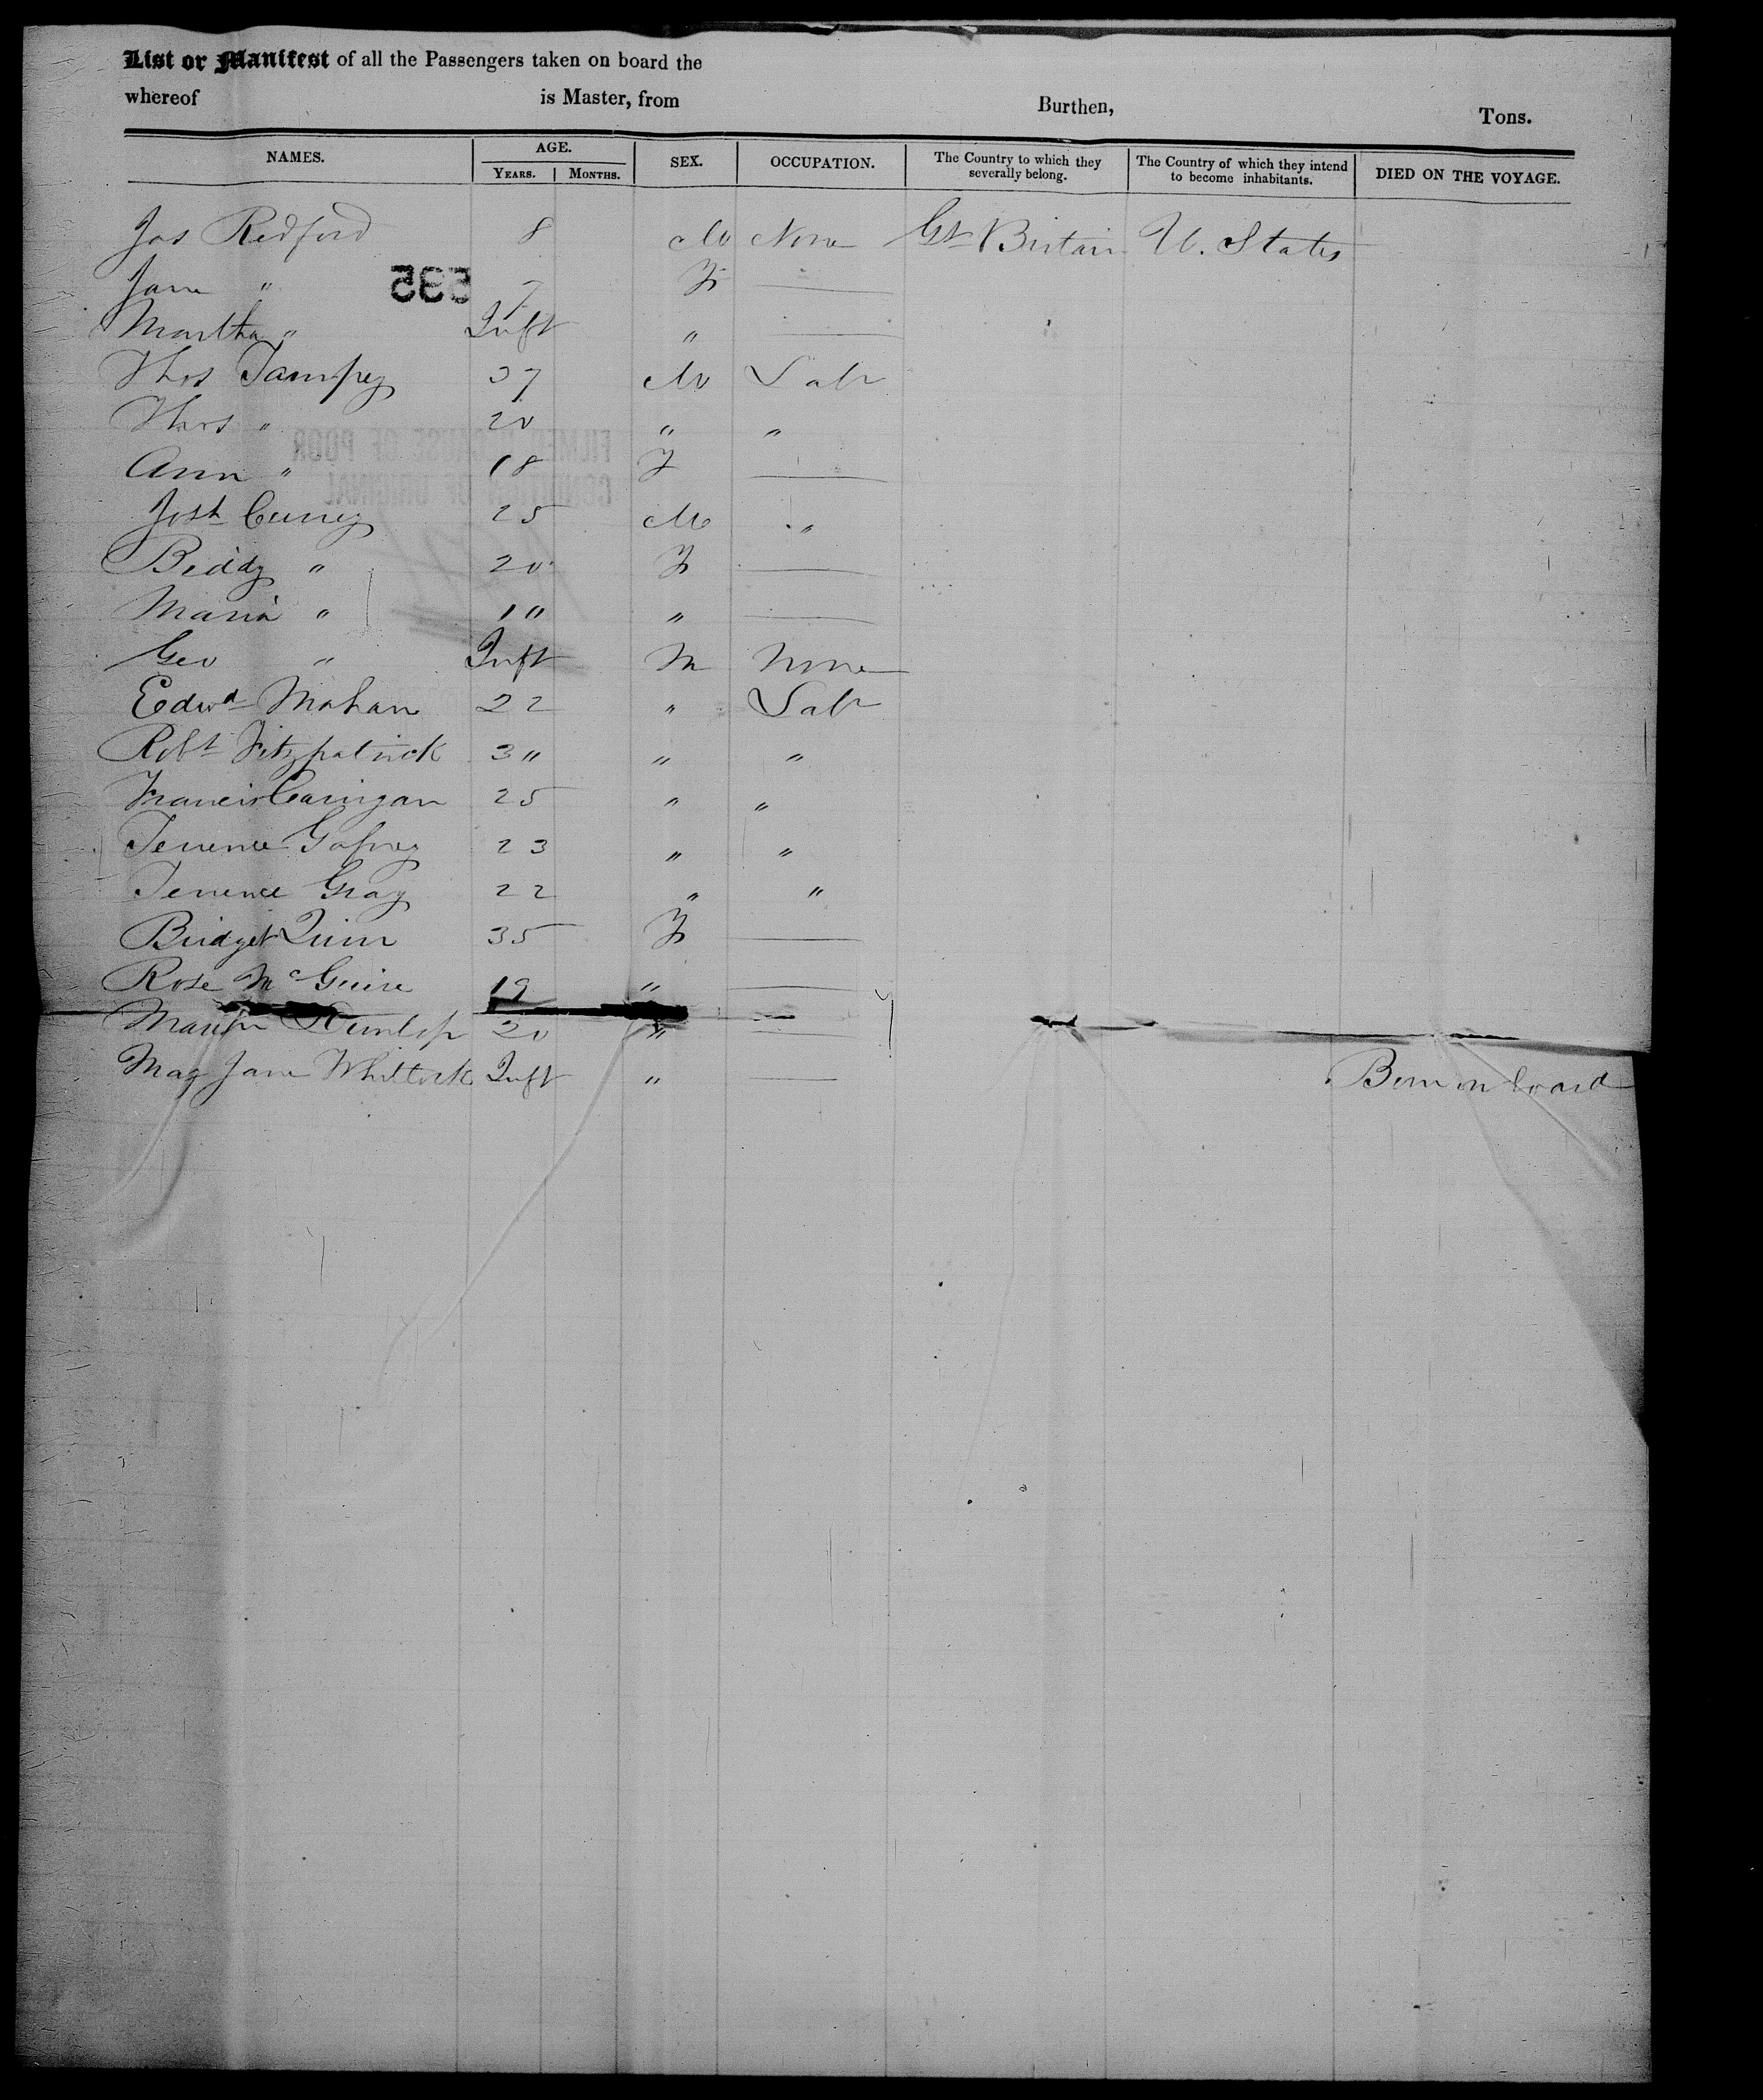 List or Manifest of all the Passengers taken on board the
whereof is Master, from Burthen, Tons.
NAMES. AGE. YEARS. MONTHS. SEX. OCCUPATION. The Country to which they severally belong. The Country of which they intend to become inhabitants. DIED ON THE VOYAGE.
Jas Redford 8 M None Gt Britain U. States
Jane " 7 F —
Martha " Inft " —
Thos Tampey 37 M Labr
Thos " 20 " "
Ann " 18 F —
Josh 25 M "
Biddy " 20 F —
Maria " 10 " —
Geo " Inft M None
Edwd Mahan 22 " Labr
Robt Fitzpatrick 30 " "
Francis Carrigan 25 " "
Terrence Gafney 23 " "
Terrence Gray 22 " "
Bridget Quinn 35 F —
Rose McGuire 19 " —
Dunlop 20 " —
May Jane Whitlock Inft " — Born on board
FILMED BECAUSE OF POOR
CONDITION OF ORIGINAL